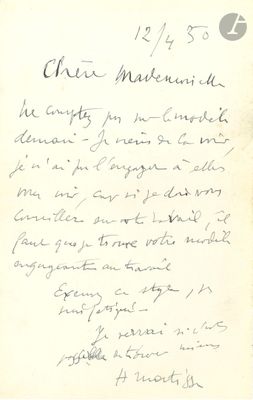 12/4 50
Chère Mademoiselle
Ne comptez pas sur le modèle
demain - Je viens de la voir,
je n'ai pu l'engager à aller
vous voir, car si je dois vous
conseiller sur votre travail, il
faut que je trouve votre modèle
engageante au travail
Excusez ce style, je
suis fatigué -
Je verrai si c'est
mieux
H Matisse